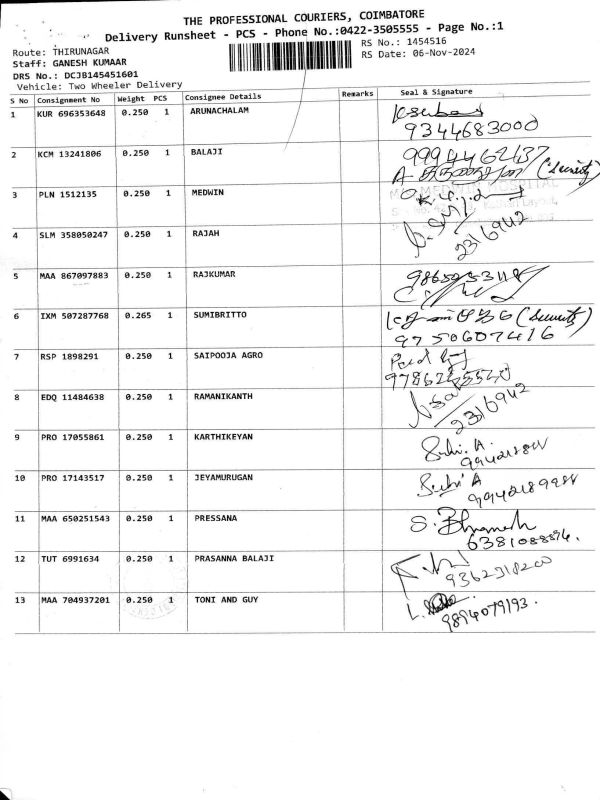 THE PROFESSIONAL COURIERS, COIMBATORE
Delivery Runsheet - PCS - Phone No.:0422-3505555 - Page No.:1
Route: THIRUNAGAR
RS No.: 1454516
Staff: GANESH KUMAAR
RS Date: 06-Nov-2024
DRS No.: DCJB145451601
Vehicle: Two Wheeler Delivery
S No Consignment No Weight PCS Consignee Details Remarks Seal & Signature
1 KUR 696353648 0.250 1 ARUNACHALAM
9344683000
2 KCM 13241806 0.250 1 BALAJI 9994462137
(Security)
3 PLN 1512135 0.250 1 MEDWIN
HOSPITAL
4 SLM 358050247 0.250 1 RAJAH
2316942
5 MAA 867097883 0.250 1 RAJKUMAR
6 IXM 507287768 0.265 1 SUMIBRITTO (Security)
9750607416
7 RSP 1898291 0.250 1 SAIPOOJA AGRO
8 EDQ 11484638 0.250 1 RAMANIKANTH
2316942
9 PRO 17055861 0.250 1 KARTHIKEYAN
10 PRO 17143517 0.250 1 JEYAMURUGAN
11 MAA 650251543 0.250 1 PRESSANA
12 TUT 6991634 0.250 1 PRASANNA BALAJI
13 MAA 704937201 0.250 1 TONI AND GUY
9894079193.